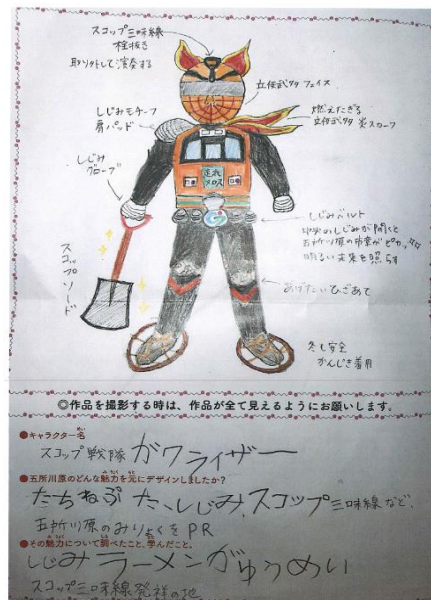 スコップ三味線
栓抜き
取り外しして演奏する
立佞武多フェイス
しじみモチーフ
肩パッド
燃えたぎる
立佞武多 炎スカーフ
しじみ
グローブ
走れ
メロス
しじみベルト
中央のしじみが開くと
五所川原の市章がピカッ
明るい未来を照らす
スコップソード
あげたいひざあて
冬も安全
かんじき着用
◎作品を撮影する時は、作品が全て見えるようにお願いします。
●キャラクター名
スコップ戦隊 ガワライザー
●五所川原のどんな魅力を元にデザインしましたか?
たちねぷた、しじみ、スコップ三味線など、
五所川原のみりょくをPR
●その魅力について調べたこと、学んだこと。
しじみラーメンがゆうめい
スコップ三味線発祥の地